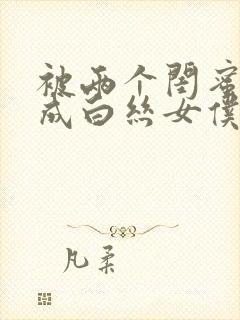 被两个闺蜜
成白丝女僕
凡柔